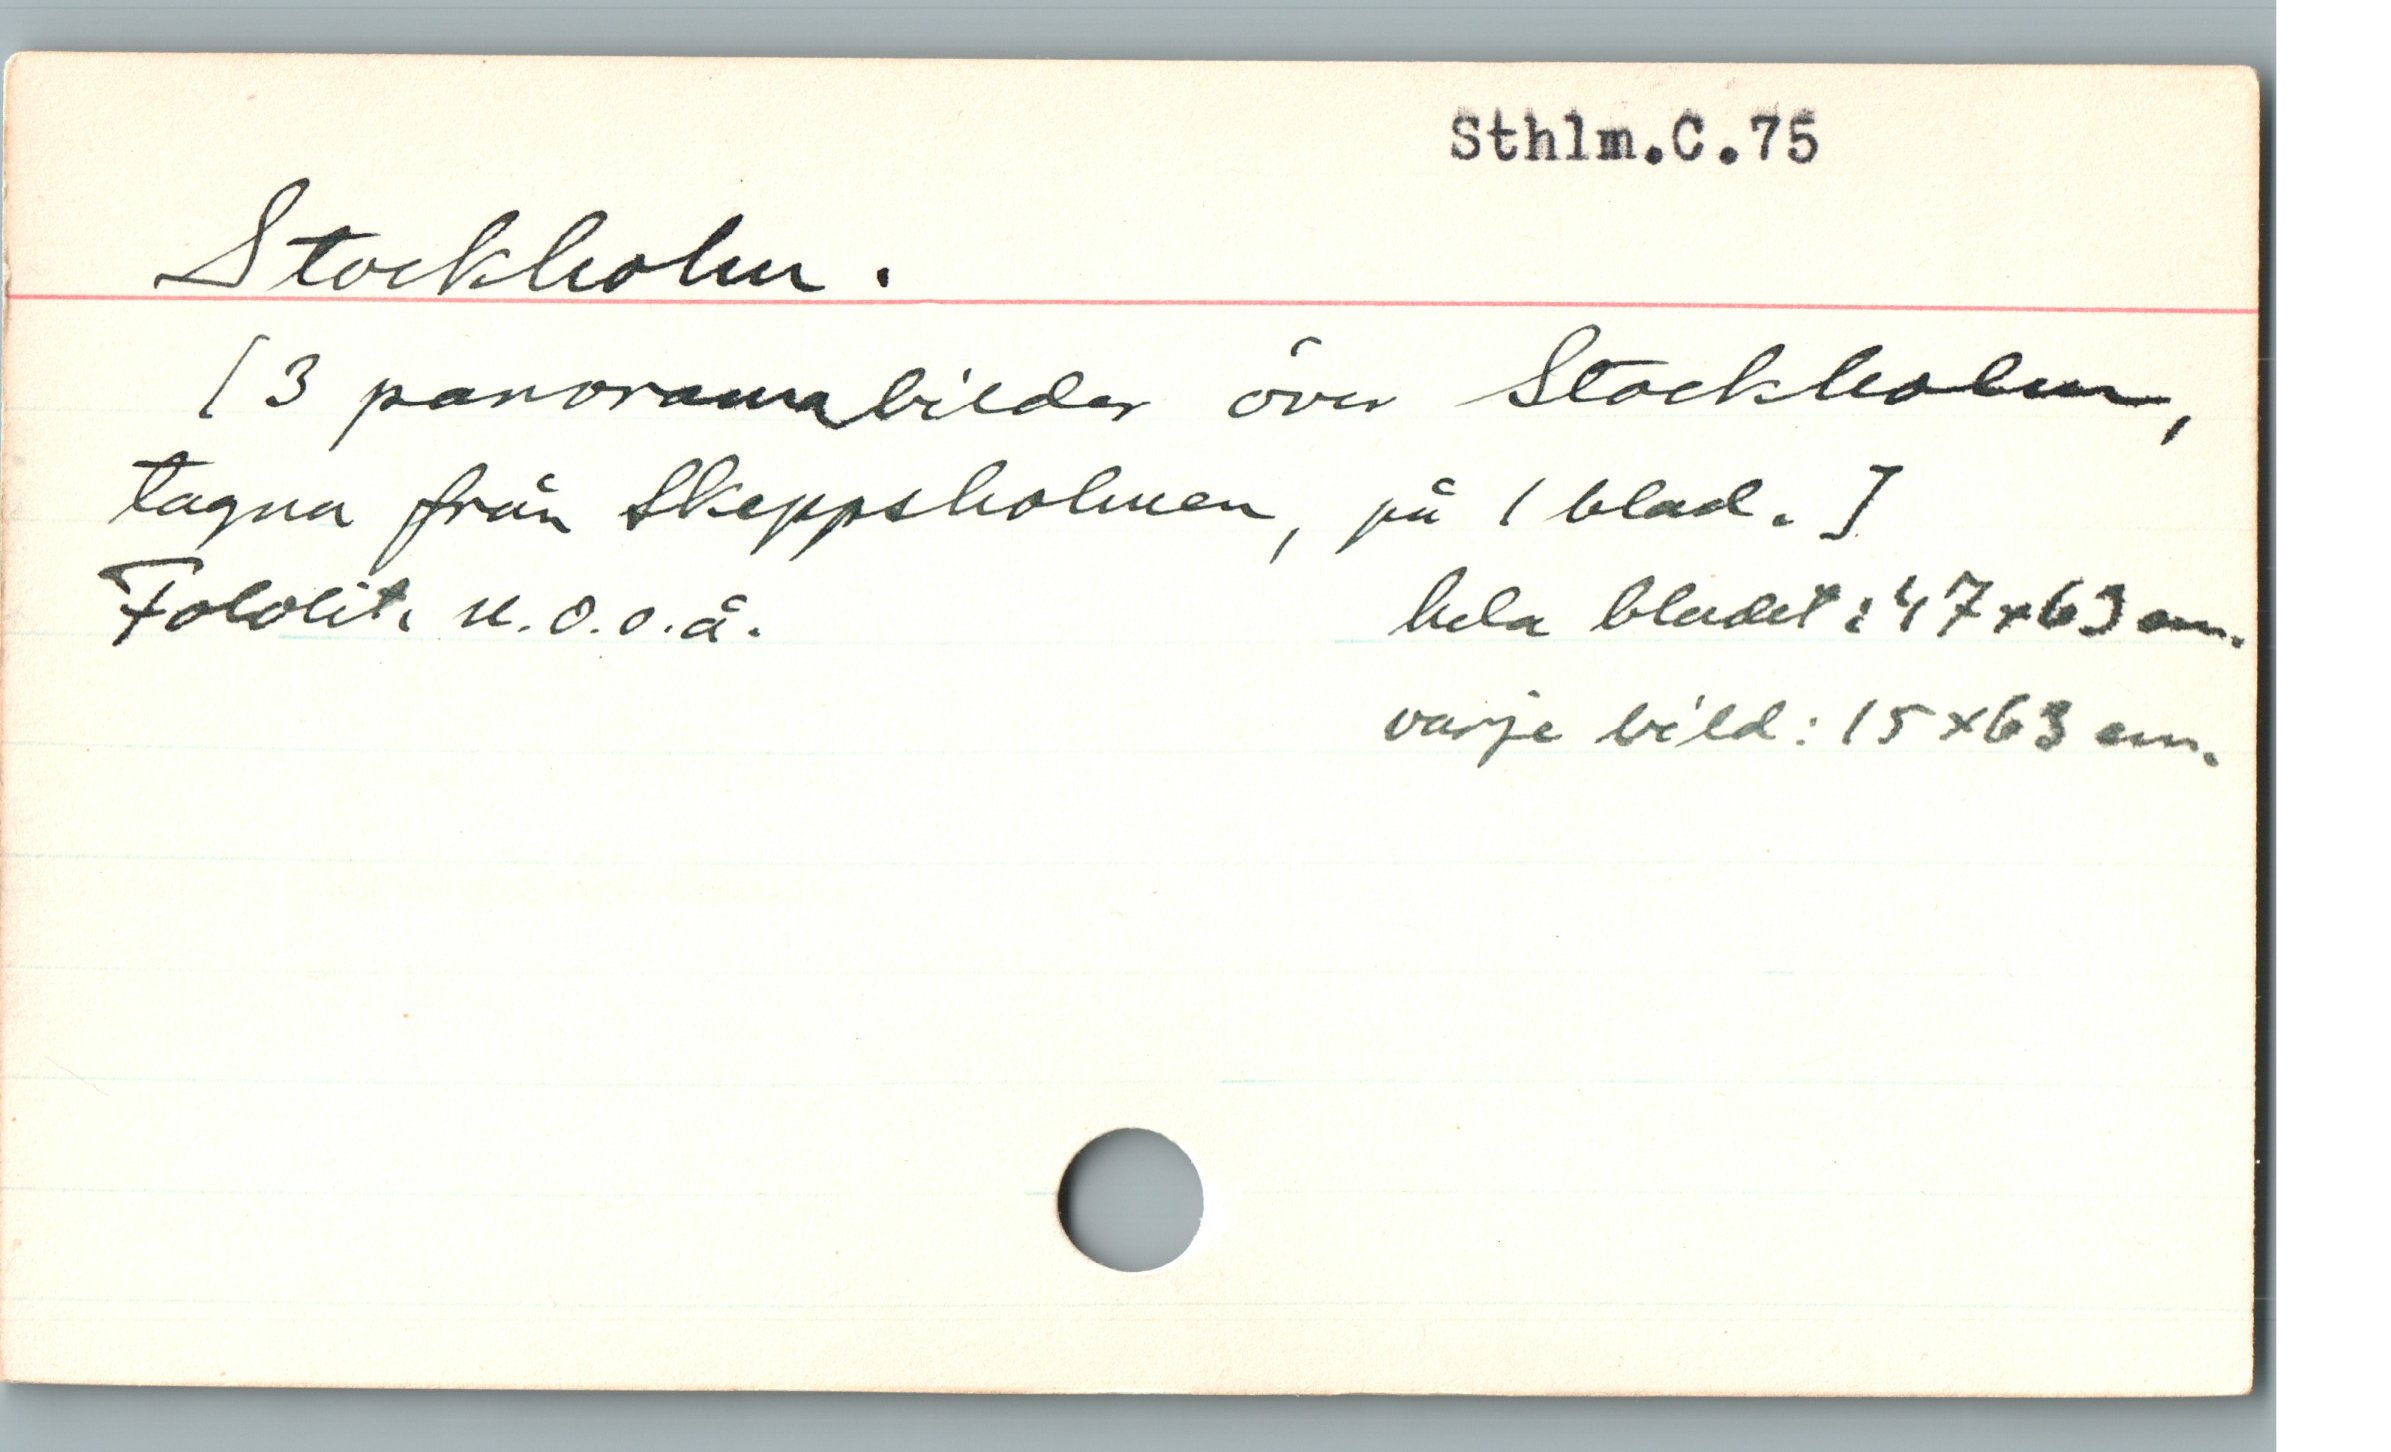 Sthlm.C.75
Stockholm.
[3 panoramabilder över Stockholm,
tagna från Skeppsholmen, på 1 blad.]
Fotolit. u.o.o.å. hela bladet: 47x63 cm.
varje bild: 15x63 cm.